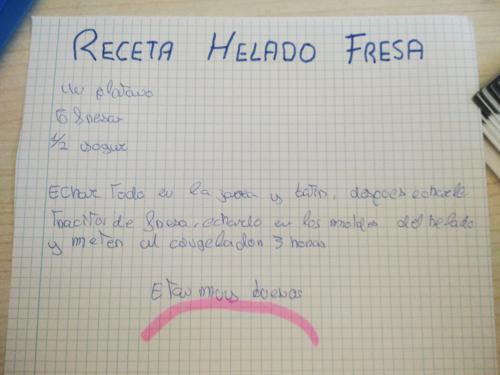 RECETA HELADO FRESA
Un platano
6 fresas
1/2 yogur
Echar todo en la jarra y batir, despues echarle
tracitos de fresa, echarlo en los moldes del helado
y meter al congelador 3 horas
Estan muy buenos